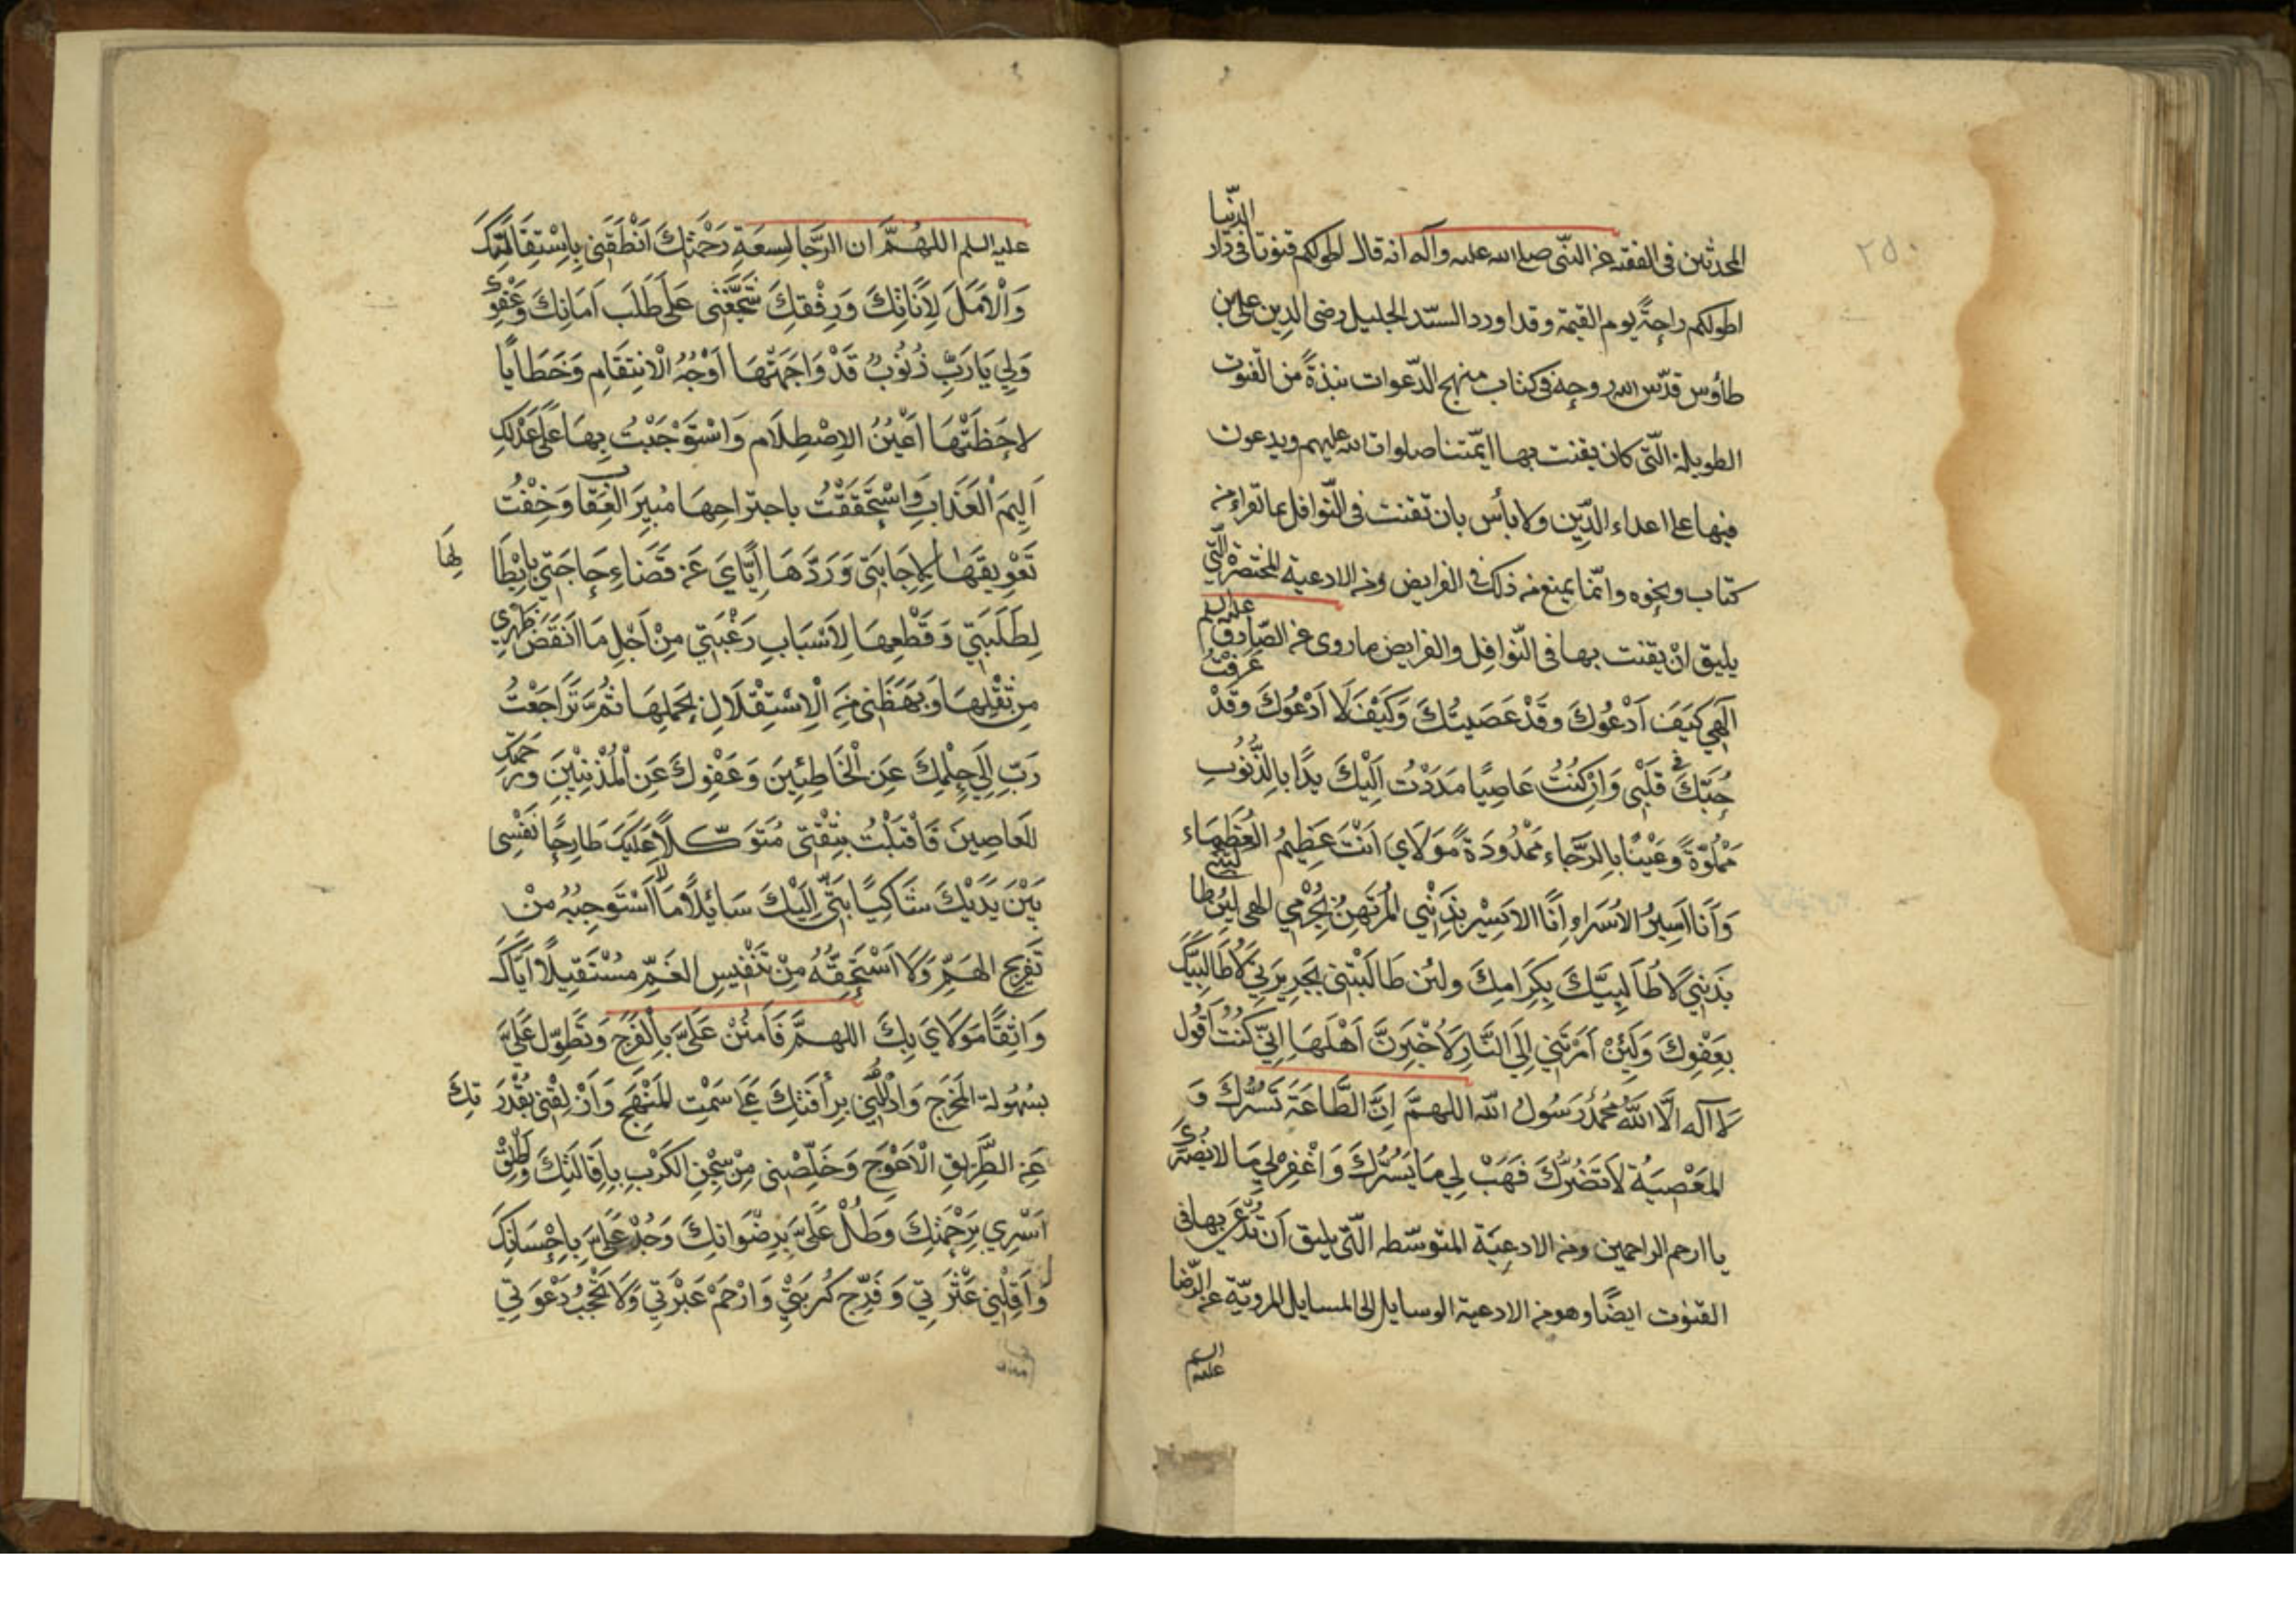 ٢٥٠
المحدثين في الفقيه عن النبّي صلى الله عليه وآله انه قال اطولكم قنوتا في دار الدّنيا
اطولكم راحةً يوم القيمة وقد اورد السيّد الجليل رضى الدين على بن
طاوس قدّس الله روحه في كتاب منهج الدّعوات نبذةً من القنوت
الطويلة الّتى كان يقنت بها ائمّتنا صلوات الله عليهم ويدعون
فيها على اعداء الدّين ولا بأس بان تقنت في النّوافل بما تقراءه من
كتاب ونحوه وانّما يمنع من ذلك في الفرايض ومن الادعية المختصرة الّتي
يليق انْ يقنت بها في النّوافِل والفرايض ما روى عن الصّادق عليه السلم
اِلٰهي كَيَفَ اَدْعُوكَ وقَدْ عَصَيتُكَ وَكَيْفَ لَا اَدْعُوكَ وقَدْ عَرَفْتُ
حُبَّكَ في قَلْبي وَاِنْ كُنْتُ عَاصِيًا مَدَدْتُ اِلَيْكَ يدًا بِالذُّنُوبِ
مَمْلُوّةً وعَيْنًا بِالرَّجَاء مَمْدُودَةً مَوْلَايَ اَنْتَ عَظِيمُ الْعُظَمَاء
وَاَنَا اَسِيرُ الاُسَرَاءِ اَنَا الاَسِيْر بِذَنْبي المُرتَهِنُ بِجُرْمي الهي لَئِن طالَبْتَنِي
بِذَنْبي لَاُطَالِبَنَّكَ بِكَرَامِكَ ولئن طَالَبْتَنِي بِجَرِيرَتِي لَاُطَالِبَنَّكَ
بِعَفْوِكَ وَلَئِنْ اَمَرْتَنِي اِلَي النَّارِ لَاُخْبِرَنَّ اَهْلَهَا اِنِّي كُنْتُ اَقُول
لَا اِلٰه اِلَّا اللهُ مُحَمَّدٌ رَسُولُ اللّٰه اللهمَّ اِنَّ الطَّاعَةَ تَسُرُّكَ وَ
المَعْصِيَةُ لَا تَضُرُّكَ فَهَبْ لِي مَا يَسُرُّكَ وَاغْفِرْ لِي مَا لا يَضُرُّكَ
يا ارحم الراحمين ومن الادعِيَة المتوسّطه الّتي يليق اَن تُدْعَي بها في
القنوت ايضًا وهو من الادعية الوسايل الى المسايل المرويّة عن الرّضا
عليه السلم
عليه السلم اللهُمَّ ان الرَّجا لِسِعَةِ رَحْمَتِكَ اَنْطَقَنِي بِاسْتِقَالَتِكَ
وَالْاَمَلَ لِاَنَاتِكَ وَرِفْقِكَ شَجَّعَنِي عَلَى طَلَبِ اَمَانِكَ وَعَفْوِكَ
وَلِي يَا رَبِّ ذُنُوبٌ قَدْ وَاجَهَتْهَا اَوْجُهُ الْاِنْتِقَامِ وَخَطَايَا
لاحَظَتْهَا اَعْيُنُ الاِصْطِلَام وَاسْتَوْجَبْتُ بِهَا عَلَى عَدْلِكَ
اَلِيمَ الْعَذَابِ وَاسْتَحْقَقْتُ باجتراحِهَا مُبِيرَ الْعِقَاب وَخِفْتُ
تَعْوِيقَهَا لِاِجَابَتِي وَرَدَّهَا اِيَّايَ عَن قَضَاءِ حَاجَتِي بِاِبْطَالِهَا
لِطَلِبَتِي وَقَطْعِهَا لِاَسْبَابِ رَغْبَتِي مِنْ اَجْلِ مَا اَنْقَضَ ظَهْرِي
مِن ثِقْلِهَا وَبَهَظَنِي مِنَ الْاِسْتِقْلَالِ بِحَمْلِهَا ثُمَّ تَرَاجَعْتُ
رَبِّ اِلَي حِلْمِكَ عَنِ الْخَاطِئِينَ وَعَفْوِكَ عَنِ الْمُذْنِبِيْنَ وَرَحْمَتِكَ
لِلعَاصِينَ فَاَقْبَلْتُ بِثِقْتِي مُتَوَكّلًا عَلَيكَ طَارِحًا نَفْسِي
بَيْنَ يَدَيْكَ شَاكِيًا بَثِّي اِلَيْكَ سَايِلًا مَا لَا اَسْتَوجِبُهُ مِنْ
تَفرِيجِ الهَمِّ وَلَا اَسْتَحِقُّهُ مِنْ تَنْفِيسِ الغَمِّ مُسْتَقِيلًا اِيَّاكَ
وَاثِقًا مَوْلَايَ بِكَ اللهمَّ فَامْنُنْ عَلَيَّ بِالْفَرَجِ وَتَطَوَّل عَلَيَّ
بِسُهُولة المَخْرَج وَادْلُلْنِي بِرأفَتِكَ عَلَى سَمْتِ المَنْهَجِ وَاَزْلِقْنِي بقُدْرَتِكَ
عَنِ الطَّرِيقِ الْاَعْوَج وَخَلِّصْنِي مِنْ سِجْنِ الكَرْبِ بِاِقَالَتِكَ وَاَطْلِقْ
اَسْرِي بِرَحْمَتِكَ وَطُلْ عَلَيَّ بِرِضْوَانِكَ وَجُدْ عَلَيَّ بِاِحْسَانِكَ
وَاَقِلْنِي عَثْرَتِي وَفَرِّج كُرْبَتِي وَارْحَمْ عَبْرَتِي وَلَا تَحْجُبْ دَعْوَتِي